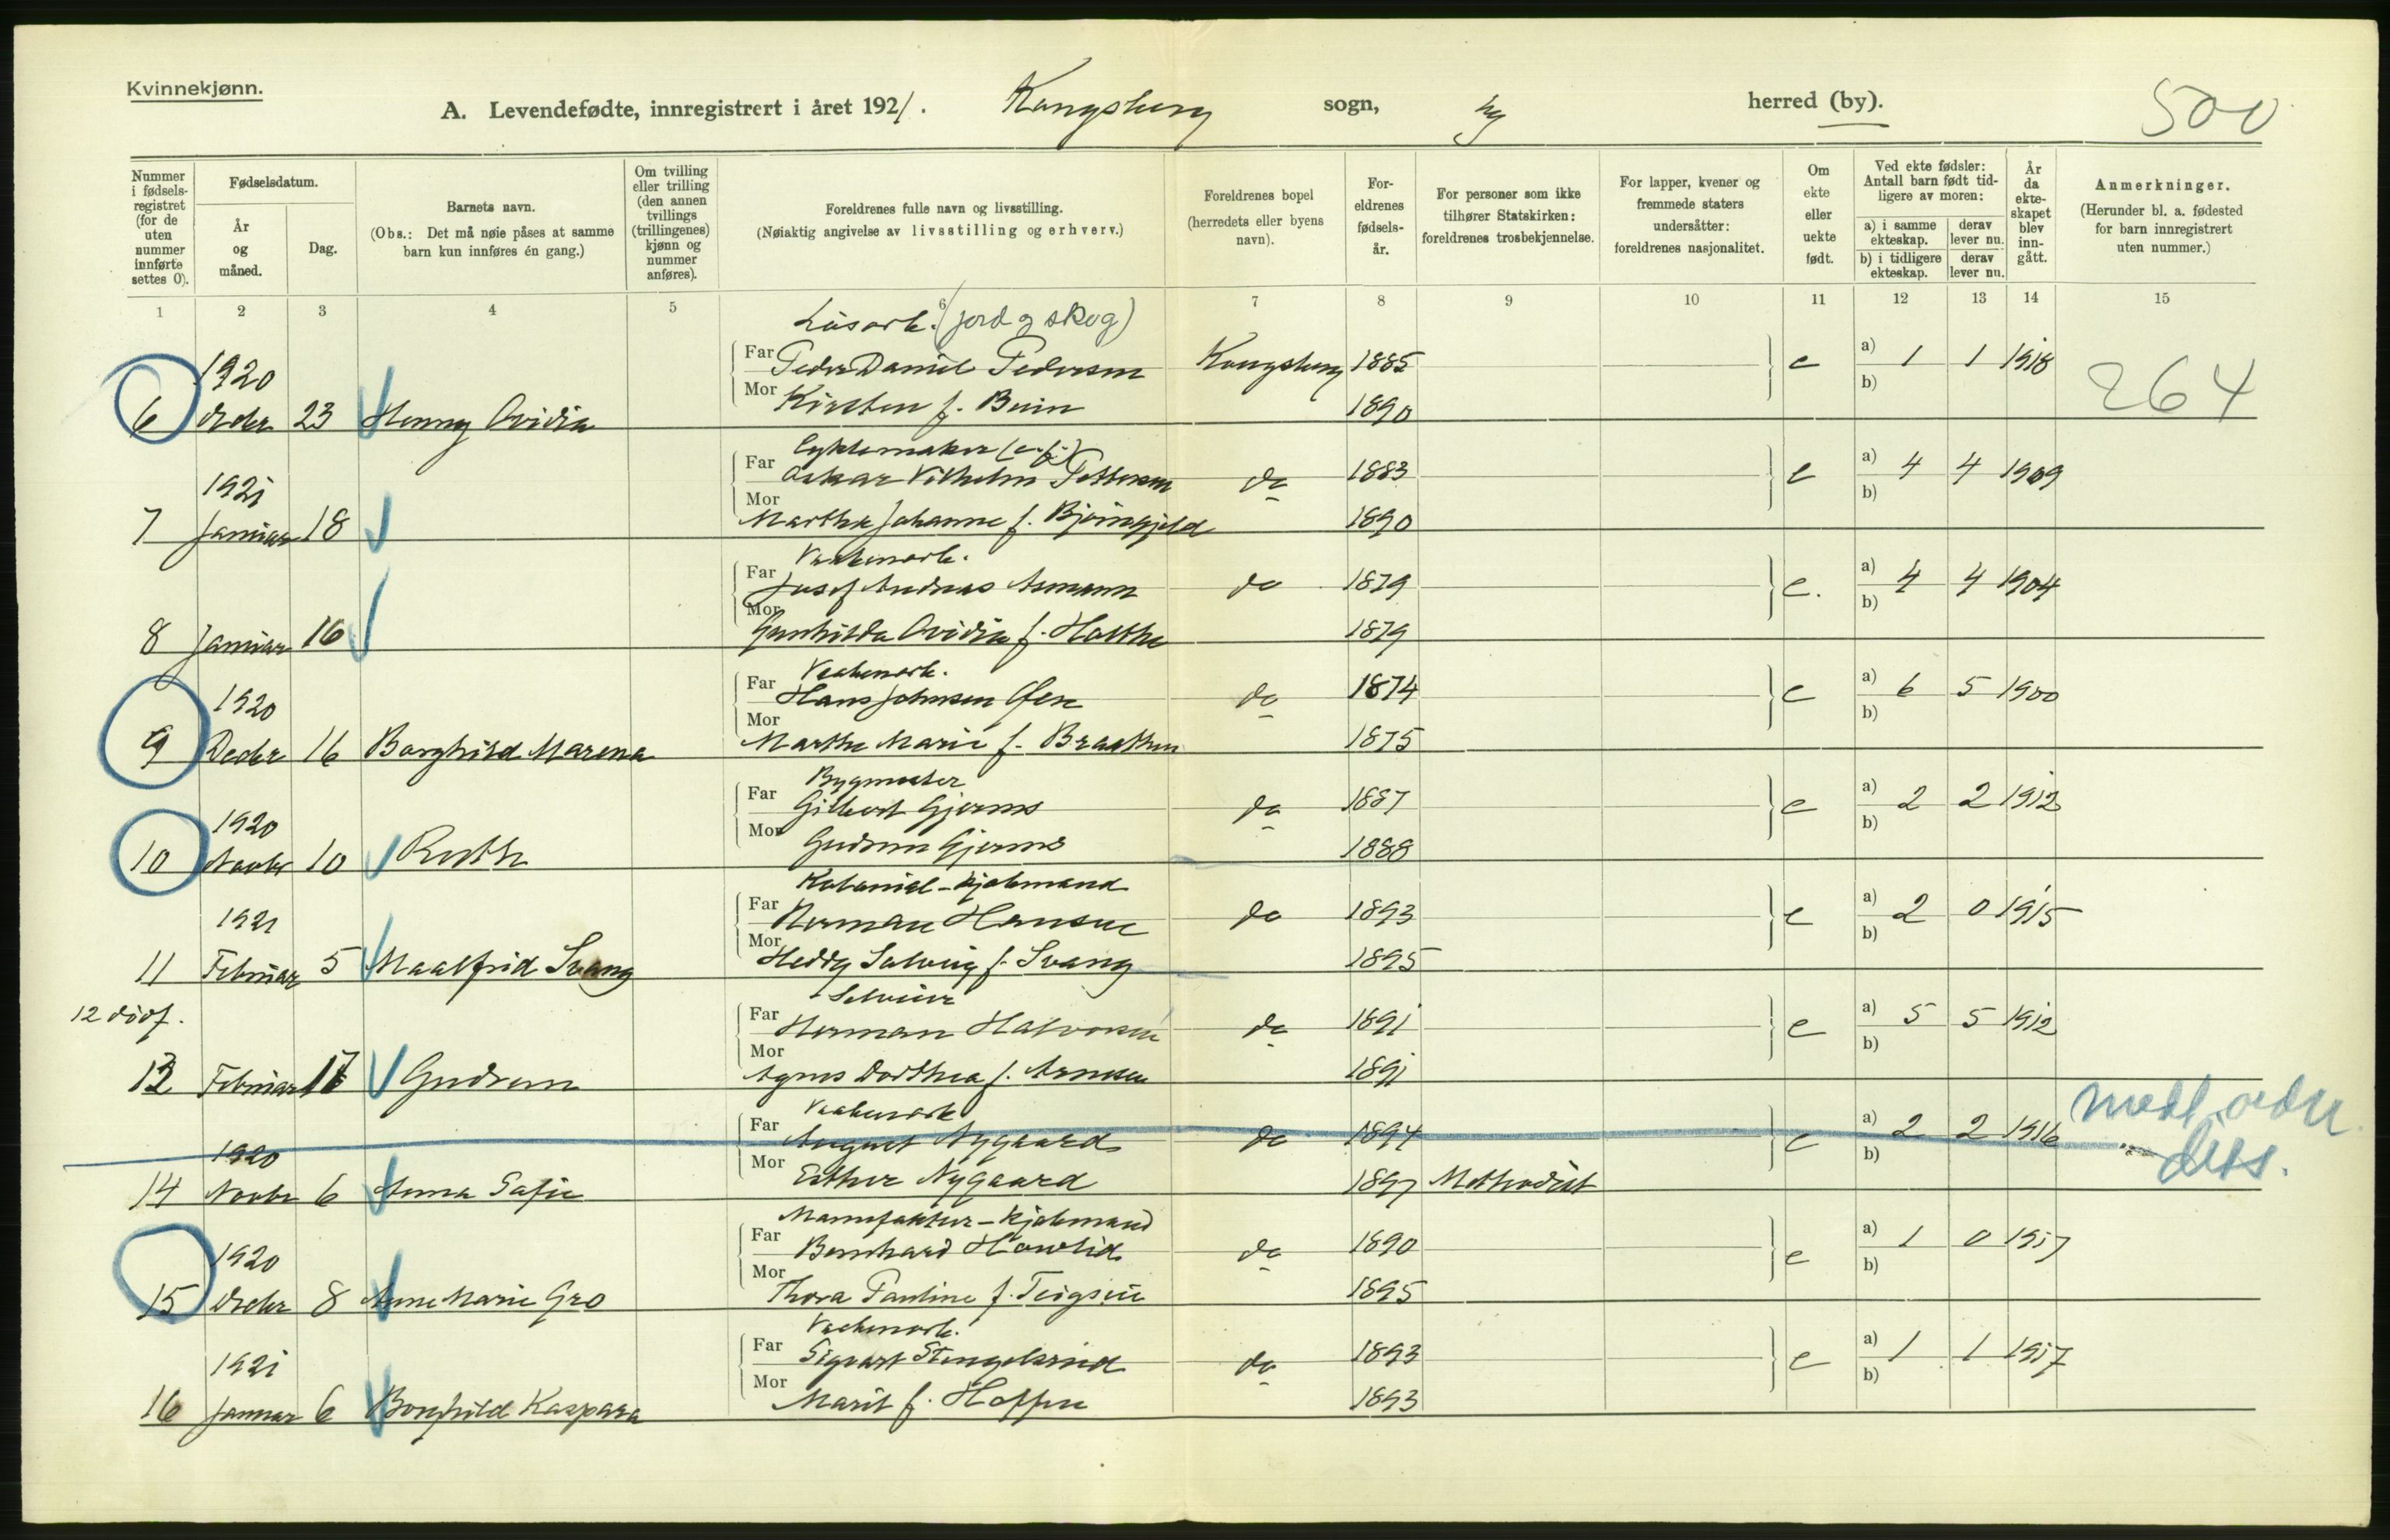 Kvinnekjønn.
A. Levendefødte, innregistrert i året 1921. Kongsberg sogn, by herred (by). 500
Nummer i fødsels-registret (for de uten nummer innførte settes 0).
Fødselsdatum.
År og måned.
Dag.
Barnets navn.
(Obs.: Det må nøie påses at samme barn kun innføres én gang.)
Om tvilling eller trilling (den annen tvillings (trillingenes) kjønn og nummer anføres).
Foreldrenes fulle navn og livsstilling.
(Nøiaktig angivelse av livsstilling og erhverv.)
Foreldrenes bopel (herredets eller byens navn).
For-eldrenes fødsels-år.
For personer som ikke tilhører Statskirken: foreldrenes trosbekjennelse.
For lapper, kvener og fremmede staters undersåtter: foreldrenes nasjonalitet.
Om ekte eller uekte født.
Ved ekte fødsler: Antall barn født tid-ligere av moren:
a) i samme ekteskap. derav lever nu.
b) i tidligere ekteskap. derav lever nu.
År da ekte-skapet blev inn-gått.
Anmerkninger.
(Herunder bl. a. fødested for barn innregistrert uten nummer.)
1 2 3 4 5 6 7 8 9 10 11 12 13 14 15
Løsarb. (jord og skog)
1920 Far Peder Daniel Pedersen Kongsberg 1885 e a) 1 1 1918
6 Decbr 23 Henny Ovidia Mor Kirsten f. Buin 1890 b) 264
Cyklemaker
1921 Far Oskar Vilhelm Pettersen do 1883 e a) 4 4 1909
7 Januar 18 Mor Marthe Johanne f. Bjørngjeld 1890 b)
Vaabenarb.
Far Josef Andreas Asmann do 1879 e. a) 4 4 1904
8 Januar 16 Mor Gunhilda Ovidia f. Holthe 1879 b)
Vaabenarb.
1920 Far Hans Johnsen do 1874 e a) 6 5 1900
9 Decbr 16 Borghild Marena Mor Marthe Marie f. Braathen 1875 b)
Bygmester
1920 Far Gilbert Gjerms do 1887 e a) 2 2 1912
10 Novbr 10 Ruth Mor Gudrun Gjerms 1888 b)
Kolonial-kjøbmand
1921 Far Herman Hansen do 1893 e a) 2 0 1915
11 Februar 5 Maalfrid Svang Mor Heddy Solveig f. Svang 1895 b)
12 dødf.
Far Herman Halvorsen do 1891 e a) 5 5 1912
13 Februar 17 Gudrun Mor Agnes Dorthea f. Arnesen 1891 b)
Vaabenarb
1920 Far August Nygaard do 1894 e a) 2 2 1916 diss.
14 Novbr 6 Anna Sofie Mor Esther Nygaard 1897 Methodist b)
Manufaktur-kjøbmand
1920 Far Bernhard Howlid do 1890 e a) 1 0 1917
15 Decbr 8 Anne Marie Gro Mor Thora Pauline f. Teigseie 1895 b)
Vaabenarb.
1921 Far Sigvart Stengelsrud do 1893 e a) 1 1 1917
16 Januar 6 Borghild Kaspara Mor Marit f. Hoffen 1893 b)